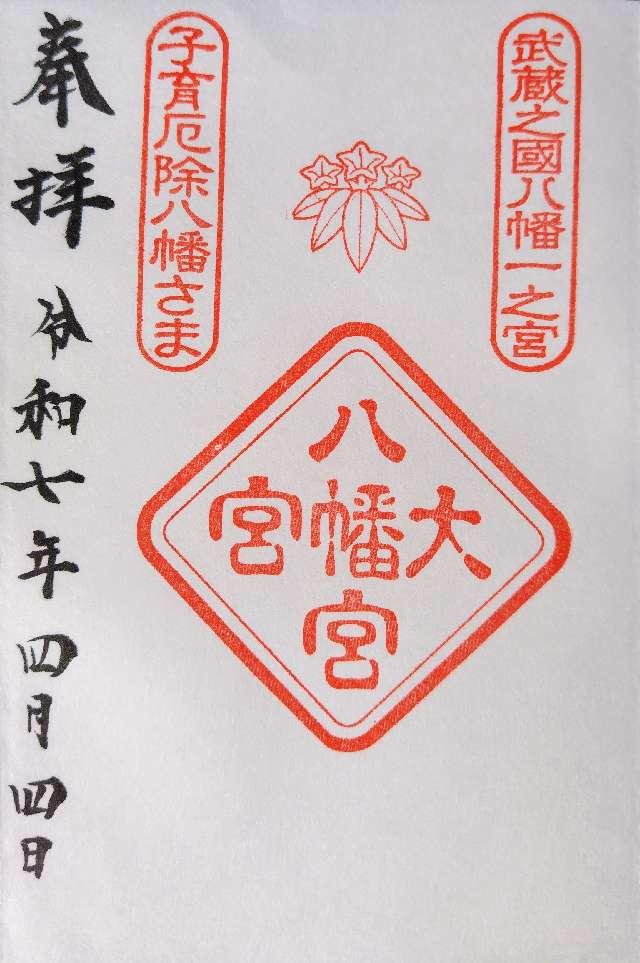 武蔵之國八幡一之宮
八幡宮
大
宮
子育厄除八幡さま
奉拝
令和七年四月四日